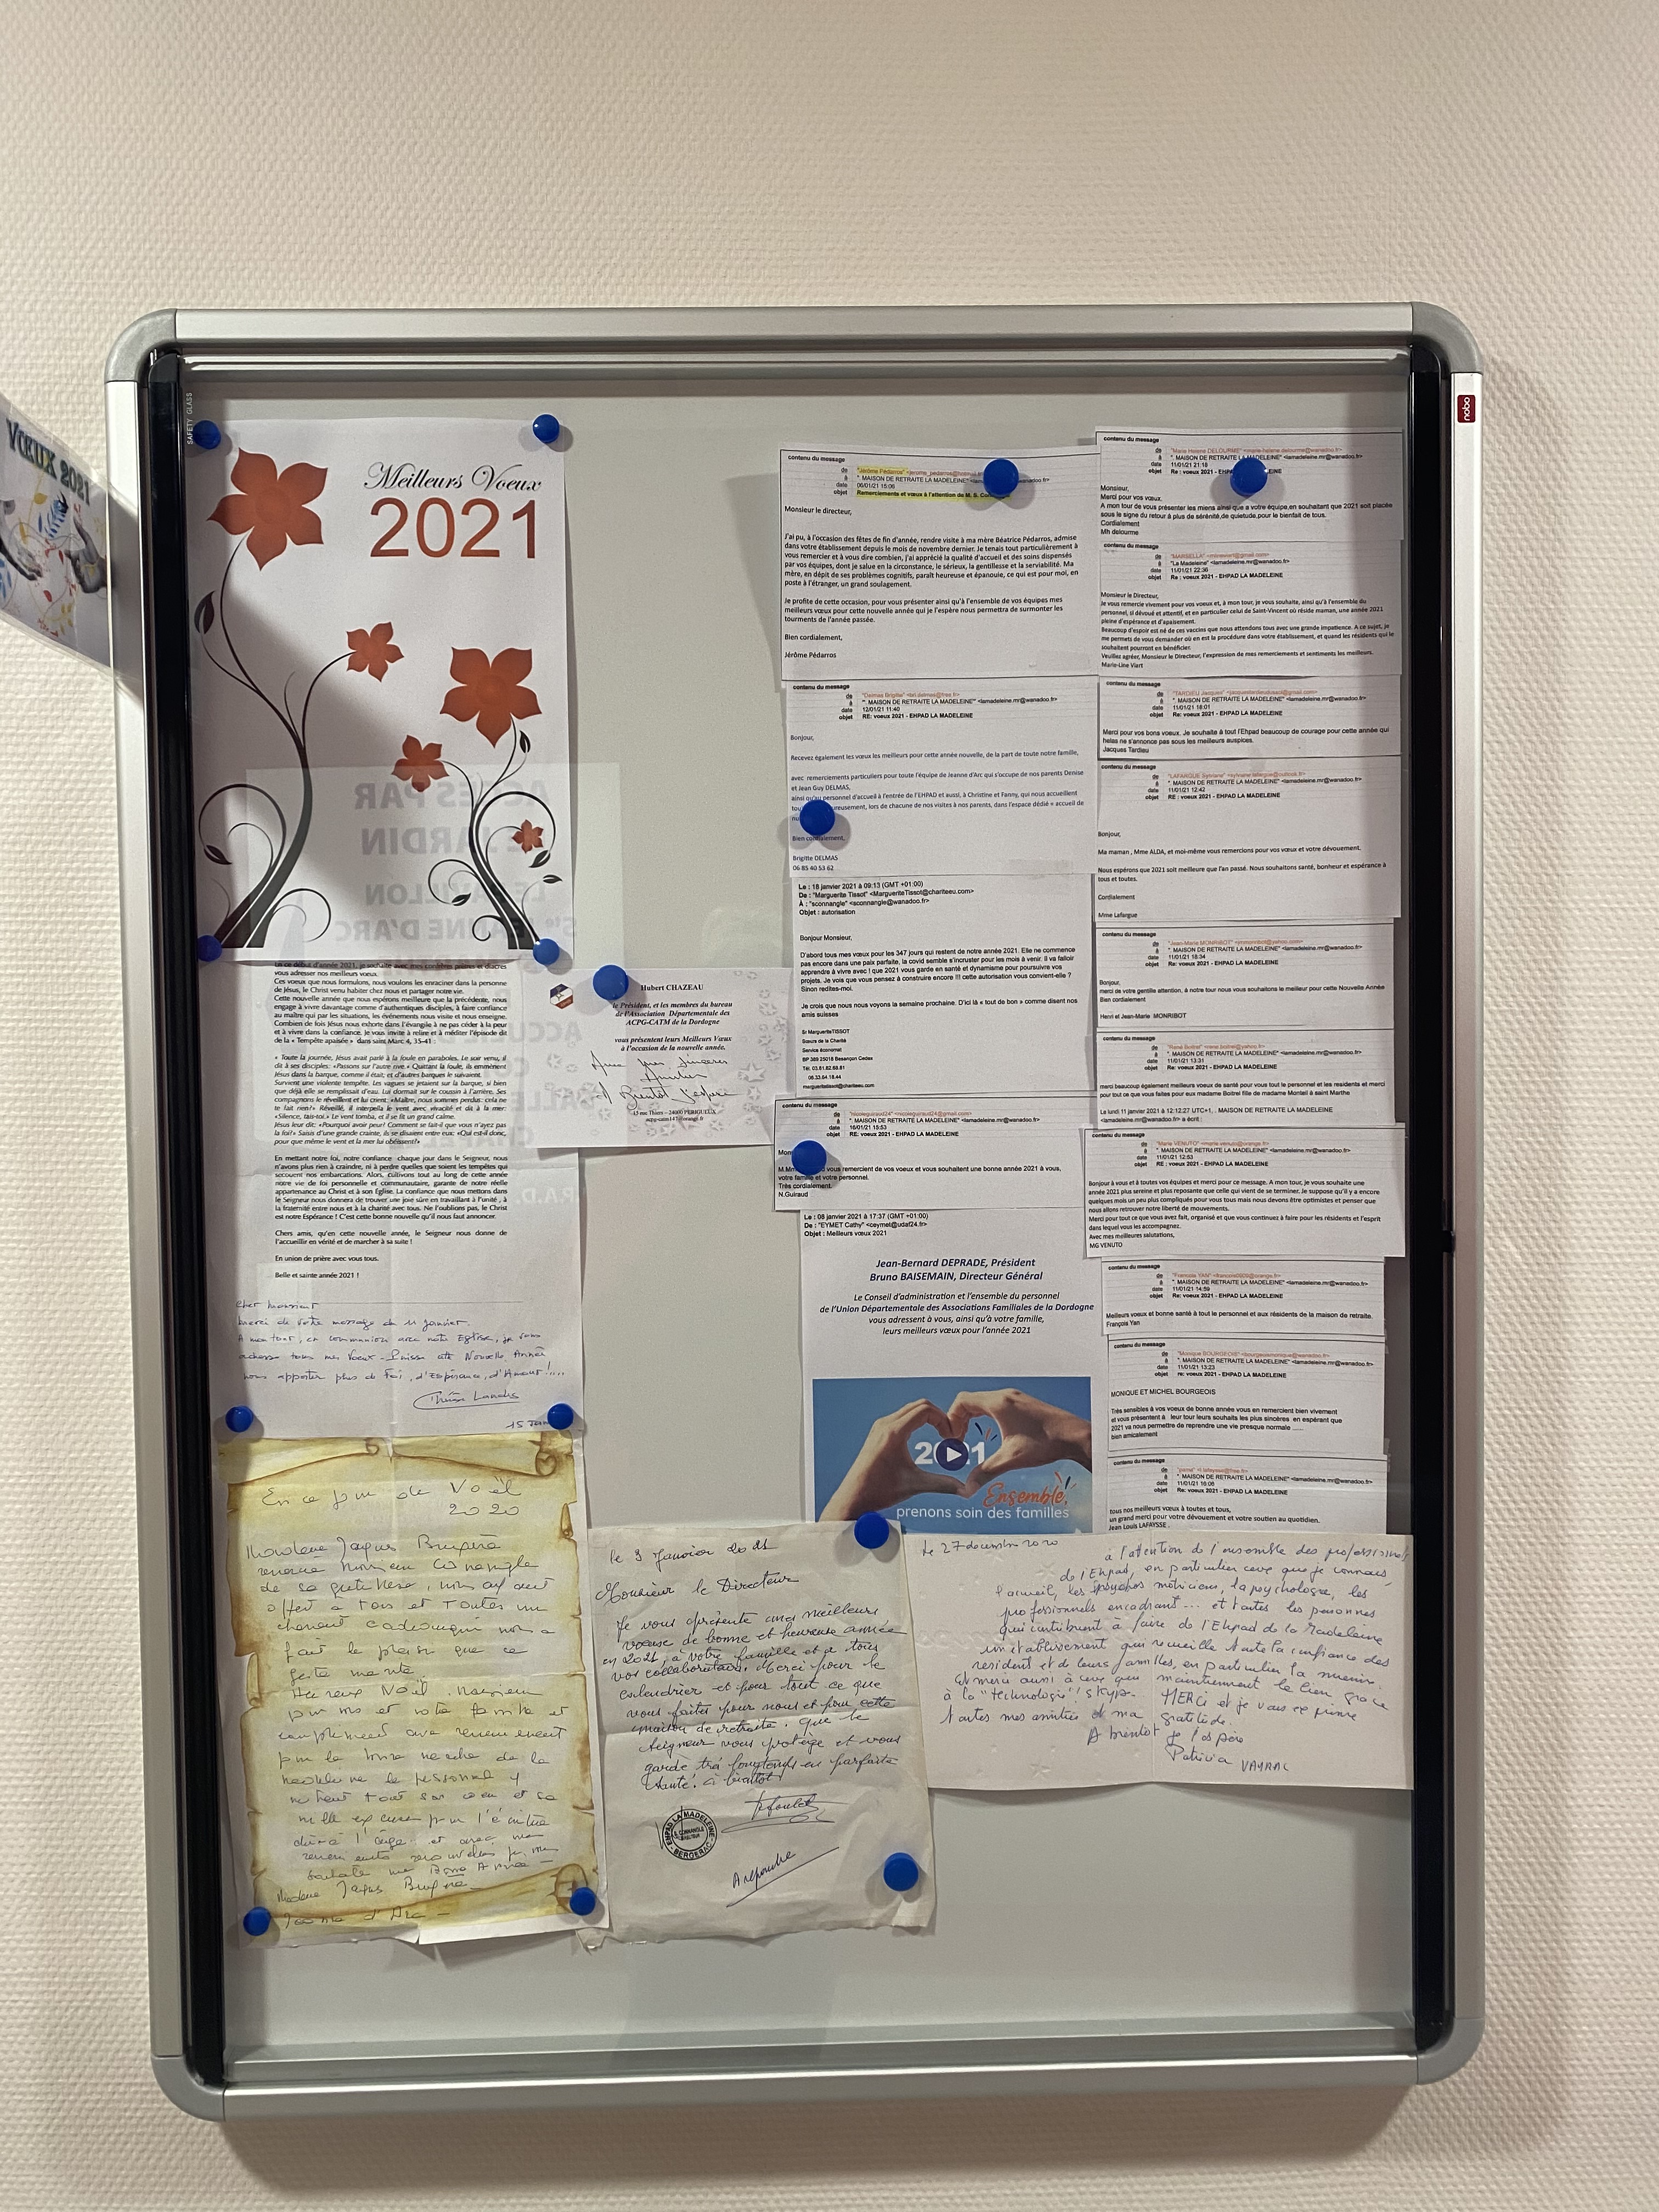 VŒUX 2021
SAFETY GLASS
nobo
Meilleurs Voeux
2021
En ce début d'année 2021, je souhaite avec mes confrères prêtres et diacres
vous adresser nos meilleurs vœux.
Ces voeux que nous formulons, nous voulons les enraciner dans la personne
de Jésus, le Christ venu habiter chez nous et partager notre vie.
Cette nouvelle année que nous espérons meilleure que la précédente, nous
engage à vivre davantage comme d'authentiques disciples, à faire confiance
au maître qui par les situations, les événements nous visite et nous enseigne.
Combien de fois Jésus nous exhorte dans l'évangile à ne pas céder à la peur
et à vivre dans la confiance. Je vous invite à relire et à méditer l'épisode dit
de la « Tempête apaisée » dans saint Marc 4, 35-41 :
« Toute la journée, Jésus avait parlé à la foule en paraboles. Le soir venu, il
dit à ses disciples: «Passons sur l'autre rive.» Quittant la foule, ils emmènent
Jésus dans la barque, comme il était; et d'autres barques le suivaient.
Survient une violente tempête. Les vagues se jetaient sur la barque, si bien
que déjà elle se remplissait d'eau. Lui dormait sur le coussin à l'arrière. Ses
compagnons le réveillent et lui crient: «Maître, nous sommes perdus; cela ne
te fait rien?» Réveillé, il interpelle le vent avec vivacité et dit à la mer:
«Silence, tais-toi.» Le vent tomba, et il se fit un grand calme.
Jésus leur dit: «Pourquoi avoir peur? Comment se fait-il que vous n'ayez pas
la foi?» Saisis d'une grande crainte, ils se disaient entre eux: «Qui est-il donc,
pour que même le vent et la mer lui obéissent?»
En mettant notre foi, notre confiance chaque jour dans le Seigneur, nous
n'avons plus rien à craindre, ni à perdre quelles que soient les tempêtes qui
secouent nos embarcations. Alors, cultivons tout au long de cette année
notre vie de foi personnelle et communautaire, garante de notre réelle
appartenance au Christ et à son Église. La confiance que nous mettons dans
le Seigneur nous donnera de trouver une joie sûre en travaillant à l'unité, à
la fraternité entre nous et à la charité avec tous. Ne l'oublions pas, le Christ
est notre Espérance ! C'est cette bonne nouvelle qu'il nous faut annoncer.
Chers amis, qu'en cette nouvelle année, le Seigneur nous donne de
l'accueillir en vérité et de marcher à sa suite !
En union de prière avec vous tous.
Belle et sainte année 2021 !
Cher Monsieur
Merci de votre message du 11 janvier.
A mon tour, en communion avec notre Eglise, je vous
adresse tous mes Voeux - Puisse cette Nouvelle Année
nous apporter plus de Foi, d'Espérance, d'Amour !....
Landis
15
En ce jour de Noël
2020
Madame Jaques Bruyère
remercie Monsieur Connangle
de sa gentillesse, nous ayant
offert a tous et toutes un
charmant cadeau qui nous a
fait le plaisir que ce
geste merite.
Heureux Noël, Monsieur
pour vous et votre famille et
compliment avec remerciement
pour la bonne marche de la
Madeleine le personnel y
mettent tout son cœu et sa
mille excuses pour l'écriture
dûe a l'âge et avec mes
remerciements renouvelés je vous
souhaite une Bonne Année -
Madame Jaques Bruyère -
Jeanne d'Arc -
Hubert CHAZEAU
le Président, et les membres du bureau
de l'Association Départementale des
ACPG-CATM de la Dordogne
vous présentent leurs Meilleurs Vœux
à l'occasion de la nouvelle année.
Avec mes sincères
Amitiés
A Bientôt j'espère
15 rue Thiers – 24000 PERIGUEUX
acpg-catm147@orange.fr
contenu du message
de "Jérôme Pédarros" <jerome_pedarros@hotmail
à ". MAISON DE RETRAITE LA MADELEINE" <lamadeleine.mr@wanadoo.fr>
date 06/01/21 15:06
objet Remerciements et vœux à l'attention de M. S.
Monsieur le directeur,
J'ai pu, à l'occasion des fêtes de fin d'année, rendre visite à ma mère Béatrice Pédarros, admise
dans votre établissement depuis le mois de novembre dernier. Je tenais tout particulièrement à
vous remercier et à vous dire combien, j'ai apprécié la qualité d'accueil et des soins dispensés
par vos équipes, dont je salue en la circonstance, le sérieux, la gentillesse et la serviabilité. Ma
mère, en dépit de ses problèmes cognitifs, paraît heureuse et épanouie, ce qui est pour moi, en
poste à l'étranger, un grand soulagement.
Je profite de cette occasion, pour vous présenter ainsi qu'à l'ensemble de vos équipes mes
meilleurs vœux pour cette nouvelle année qui je l'espère nous permettra de surmonter les
tourments de l'année passée.
Bien cordialement,
Jérôme Pédarros
contenu du message
de "Delmas Brigitte" <bri.delmas@free.fr>
à ". MAISON DE RETRAITE LA MADELEINE" <lamadeleine.mr@wanadoo.fr>
date 12/01/21 11:40
objet RE: voeux 2021 - EHPAD LA MADELEINE
Bonjour,
Recevez également les vœux les meilleurs pour cette année nouvelle, de la part de toute notre famille,
avec remerciements particuliers pour toute l'équipe de Jeanne d'Arc qui s'occupe de nos parents Denise
et Jean Guy DELMAS,
ainsi qu'au personnel d'accueil à l'entrée de l'EHPAD et aussi, à Christine et Fanny, qui nous accueillent
lors de chacune de nos visites à nos parents, dans l'espace dédié « accueil de
Bien cordialement,
Brigitte DELMAS
06 85 40 53 62
Le : 18 janvier 2021 à 09:13 (GMT +01:00)
De : "Marguerite Tissot" <MargueriteTissot@chariteeu.com>
À : "sconnangle" <sconnangle@wanadoo.fr>
Objet : autorisation
Bonjour Monsieur,
D'abord tous mes vœux pour les 347 jours qui restent de notre année 2021. Elle ne commence
pas encore dans une paix parfaite, la covid semble s'incruster pour les mois à venir. Il va falloir
apprendre à vivre avec ! que 2021 vous garde en santé et dynamisme pour poursuivre vos
projets. Je vois que vous pensez à construire encore !!! cette autorisation vous convient-elle ?
Sinon redites-moi.
Je crois que nous nous voyons la semaine prochaine. D'ici là « tout de bon » comme disent nos
amis suisses
Sr MargueriteTISSOT
Sœurs de la Charité
Service économat
BP 389 25018 Besançon Cedex
Tél. 03.81.82.68.81
06.33.64.18.44
margueritetissot@chariteeu.com
contenu du message
de "nicoleguiraud24" <nicoleguiraud24@gmail.com>
à ". MAISON DE RETRAITE LA MADELEINE" <lamadeleine.mr@wanadoo.fr>
date 16/01/21 15:53
objet RE: voeux 2021 - EHPAD LA MADELEINE
vous remercient de vos voeux et vous souhaitent une bonne année 2021 à vous,
votre famille et votre personnel.
Très cordialement.
N.Guiraud
Le : 08 janvier 2021 à 17:37 (GMT +01:00)
De : "EYMET Cathy" <ceymet@udaf24.fr>
Objet : Meilleurs vœux 2021
Jean-Bernard DEPRADE, Président
Bruno BAISEMAIN, Directeur Général
Le Conseil d'administration et l'ensemble du personnel
de l'Union Départementale des Associations Familiales de la Dordogne
vous adressent à vous, ainsi qu'à votre famille,
leurs meilleurs vœux pour l'année 2021
2021
Ensemble,
prenons soin des familles
contenu du message
de "Marie Helene DELOURME" <marie-helene.delourme@wanadoo.fr>
à ". MAISON DE RETRAITE LA MADELEINE" <lamadeleine.mr@wanadoo.fr>
date 11/01/21 21:18
objet Re : voeux 2021 - EHPAD LA MADELEINE
Monsieur,
Merci pour vos vœux.
A mon tour de vous présenter les miens ainsi que a votre équipe,en souhaitant que 2021 soit placée
sous le signe du retour à plus de sérénité,de quietude,pour le bienfait de tous.
Cordialement
Mh delourme
contenu du message
de "MARSELLA"
à "La Madeleine" <lamadeleine.mr@wanadoo.fr>
date 11/01/21 22:36
objet Re : voeux 2021 - EHPAD LA MADELEINE
Monsieur le Directeur,
Je vous remercie vivement pour vos voeux et, à mon tour, je vous souhaite, ainsi qu'à l'ensemble du
personnel, si dévoué et attentif, et en particulier celui de Saint-Vincent où réside maman, une année 2021
pleine d'espérance et d'apaisement.
Beaucoup d'espoir est né de ces vaccins que nous attendons tous avec une grande impatience. A ce sujet, je
me permets de vous demander où en est la procédure dans votre établissement, et quand les résidents qui le
souhaitent pourront en bénéficier.
Veuillez agréer, Monsieur le Directeur, l'expression de mes remerciements et sentiments les meilleurs.
Marie-Line Viart
contenu du message
de "TARDIEU Jacques"
à ". MAISON DE RETRAITE LA MADELEINE" <lamadeleine.mr@wanadoo.fr>
date 11/01/21 18:01
objet Re: voeux 2021 - EHPAD LA MADELEINE
Merci pour vos bons voeux. Je souhaite à tout l'Ehpad beaucoup de courage pour cette année qui
helas ne s'annonce pas sous les meilleurs auspices.
Jacques Tardieu
contenu du message
de "LAFARGUE Sylviane" <sylviane.lafargue@outlook.fr>
à ". MAISON DE RETRAITE LA MADELEINE" <lamadeleine.mr@wanadoo.fr>
date 11/01/21 12:42
objet RE : voeux 2021 - EHPAD LA MADELEINE
Bonjour,
Ma maman , Mme ALDA, et moi-même vous remercions pour vos vœux et votre dévouement.
Nous espérons que 2021 soit meilleure que l'an passé. Nous souhaitons santé, bonheur et espérance à
tous et toutes.
Cordialement
Mme Lafargue
contenu du message
de "Jean-Marie MONRIBOT"
à ". MAISON DE RETRAITE LA MADELEINE" <lamadeleine.mr@wanadoo.fr>
date 11/01/21 18:34
objet Re: voeux 2021 - EHPAD LA MADELEINE
Bonjour,
merci de votre gentille attention, à notre tour nous vous souhaitons le meilleur pour cette Nouvelle Année
Bien cordialement
Henri et Jean-Marie MONRIBOT
contenu du message
de "René Boitrel" <rene.boitrel@yahoo.fr>
à ". MAISON DE RETRAITE LA MADELEINE" <lamadeleine.mr@wanadoo.fr>
date 11/01/21 13:31
objet Re: voeux 2021 - EHPAD LA MADELEINE
merci beaucoup également meilleurs voeux de santé pour vous tout le personnel et les residents et merci
pour tout ce que vous faites pour eux madame Boitrel fille de madame Monteil à saint Marthe
Le lundi 11 janvier 2021 à 12:12:27 UTC+1, . MAISON DE RETRAITE LA MADELEINE
<lamadeleine.mr@wanadoo.fr> a écrit :
contenu du message
de "Marie VENUTO" <marie.venuto@orange.fr>
à ". MAISON DE RETRAITE LA MADELEINE" <lamadeleine.mr@wanadoo.fr>
date 11/01/21 12:53
objet RE : voeux 2021 - EHPAD LA MADELEINE
Bonjour à vous et à toutes vos équipes et merci pour ce message. A mon tour, je vous souhaite une
année 2021 plus sereine et plus reposante que celle qui vient de se terminer. Je suppose qu'il y a encore
quelques mois un peu plus compliqués pour vous tous mais nous devons être optimistes et penser que
nous allons retrouver notre liberté de mouvements.
Merci pour tout ce que vous avez fait, organisé et que vous continuez à faire pour les résidents et l'esprit
dans lequel vous les accompagnez.
Avec mes meilleures salutations,
MG VENUTO
contenu du message
de "Francois YAN"
à ". MAISON DE RETRAITE LA MADELEINE" <lamadeleine.mr@wanadoo.fr>
date 11/01/21 14:59
objet Re: voeux 2021 - EHPAD LA MADELEINE
Meilleurs voeux et bonne santé à tout le personnel et aux résidents de la maison de retraite.
François Yan
contenu du message
de "Monique BOURGEOIS" <bourgeoismonique@wanadoo.fr>
à ". MAISON DE RETRAITE LA MADELEINE" <lamadeleine.mr@wanadoo.fr>
date 11/01/21 13:23
objet re: voeux 2021 - EHPAD LA MADELEINE
MONIQUE ET MICHEL BOURGEOIS
Très sensibles à vos voeux de bonne année vous en remercient bien vivement
et vous présentent à leur tour leurs souhaits les plus sincères en espérant que
2021 va nous permettre de reprendre une vie presque normale ......
bien amicalement
contenu du message
de
à ". MAISON DE RETRAITE LA MADELEINE" <lamadeleine.mr@wanadoo.fr>
date 11/01/21 16:06
objet Re: voeux 2021 - EHPAD LA MADELEINE
tous nos meilleurs vœux à toutes et tous,
un grand merci pour votre dévouement et votre soutien au quotidien.
Jean Louis LAFAYSSE .
le 3 Janvier 2021
Monsieur le Directeur
Je vous présente mes meilleurs
voeux de bonne et heureuse année
en 2021, a votre famille et a tous
vos collaborateurs. Merci pour le
calendrier et pour tout ce que
vous faites pour nous et pour cette
maison de retraite. Que le
Seigneur vous protège et vous
garde très longtemps en parfaite
santé. à bientôt
EHPAD LA MADELEINE
S. CONNANGLE
DIRECTEUR
BERGERAC
A répondre
Le 27 décembre 2020
à l'attention de l'ensemble des professionnels
de l'Ehpad, en particulier ceux que je connais
l'accueil, les psychomotriciens, la psychologue, les
professionnels encadrant... et toutes les personnes
qui contribuent à faire de l'Ehpad de la Madeleine
un établissement qui recueille toute la confiance des
résident et de leurs familles, en particulier la mienne.
Et merci aussi à ceux qui maintiennent le lien grace
à la "technologie"! skype. MERCI et je vous exprime
toutes mes amitiés et ma gratitude.
A bientôt je l'espère
Patricia VAYRAC